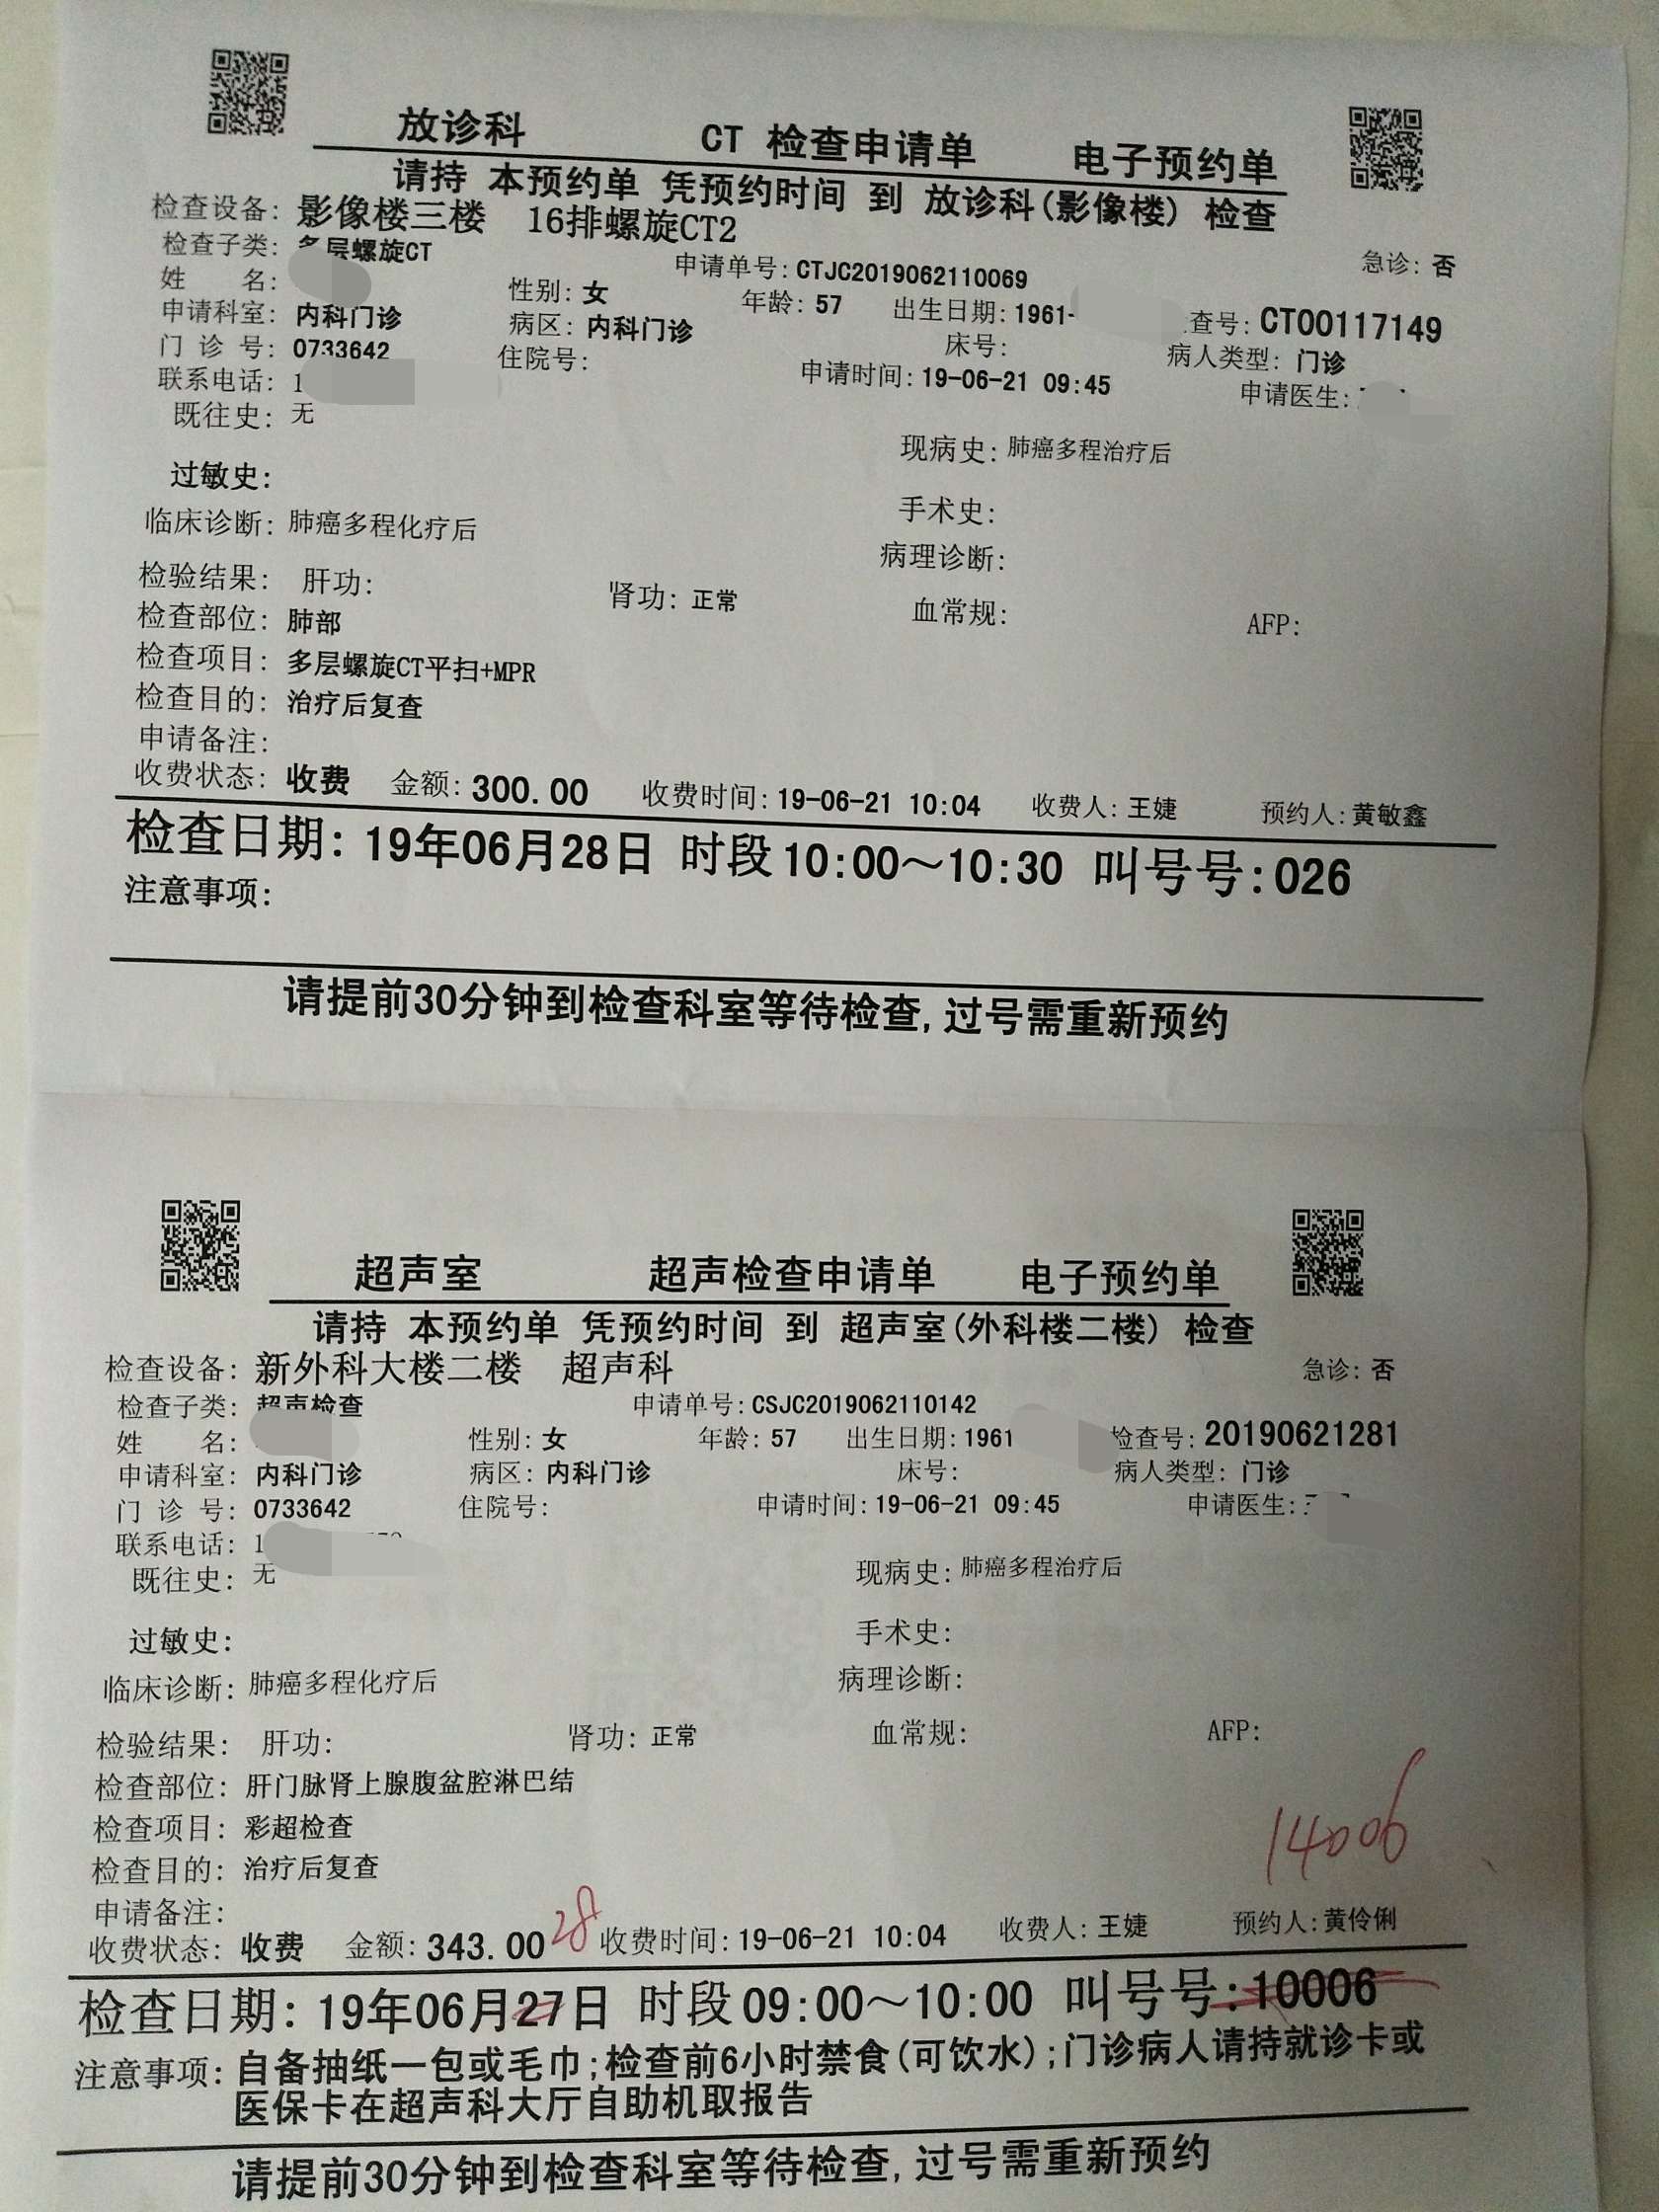 放诊科 CT 检查申请单 电子预约单
请持 本预约单 凭预约时间 到 放诊科(影像楼) 检查
检查设备: 影像楼三楼 16排螺旋CT2
检查子类: 多层螺旋CT 申请单号: CTJC2019062110069 急诊: 否
姓 名: 性别: 女 年龄: 57 出生日期: 1961- 查号: CT00117149
申请科室: 内科门诊 病区: 内科门诊 床号: 病人类型: 门诊
门 诊 号: 0733642 住院号: 申请时间: 19-06-21 09:45 申请医生:
联系电话: 1
既往史: 无 现病史: 肺癌多程治疗后
过敏史: 手术史:
临床诊断: 肺癌多程化疗后 病理诊断:
检验结果: 肝功: 肾功: 正常 血常规: AFP:
检查部位: 肺部
检查项目: 多层螺旋CT平扫+MPR
检查目的: 治疗后复查
申请备注:
收费状态: 收费 金额: 300.00 收费时间: 19-06-21 10:04 收费人: 王婕 预约人: 黄敏鑫
检查日期: 19年06月28日 时段 10:00～10:30 叫号号: 026
注意事项:
请提前30分钟到检查科室等待检查,过号需重新预约
超声室 超声检查申请单 电子预约单
请持 本预约单 凭预约时间 到 超声室(外科楼二楼) 检查
检查设备: 新外科大楼二楼 超声科 急诊: 否
检查子类: 超声检查 申请单号: CSJC2019062110142
姓 名: 性别: 女 年龄: 57 出生日期: 1961 检查号: 20190621281
申请科室: 内科门诊 病区: 内科门诊 床号: 病人类型: 门诊
门 诊 号: 0733642 住院号: 申请时间: 19-06-21 09:45 申请医生:
联系电话: 1
既往史: 无 现病史: 肺癌多程治疗后
过敏史: 手术史:
临床诊断: 肺癌多程化疗后 病理诊断:
检验结果: 肝功: 肾功: 正常 血常规: AFP:
检查部位: 肝门脉肾上腺腹盆腔淋巴结
检查项目: 彩超检查
14006
检查目的: 治疗后复查
申请备注:
收费状态: 收费 金额: 343.00 28 收费时间: 19-06-21 10:04 收费人: 王婕 预约人: 黄伶俐
检查日期: 19年06月27日 时段 09:00～10:00 叫号号: 10006
注意事项: 自备抽纸一包或毛巾;检查前6小时禁食(可饮水);门诊病人请持就诊卡或
医保卡在超声科大厅自助机取报告
请提前30分钟到检查科室等待检查,过号需重新预约